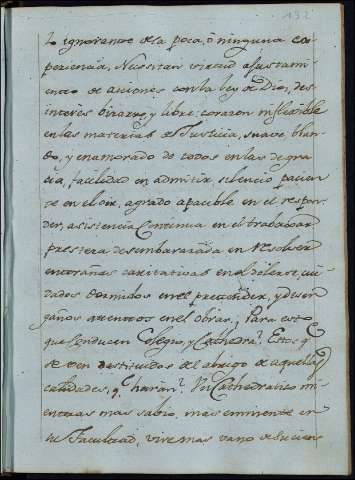 132
lo ignorante de la poca, ò ninguna ex
periencia. Necesitan virtud ajustami
ento de acciones con la ley de Dios, des
interes bizarro, y libre, corazon inflexible
en las materias de Justicia, suave, blan
do, y enamorado de todos en las de gra
cia, facilidad en admitir, silencio pacien
te en el oir, agrado apacible en el respon
der, asistencia continua en el trabajar
presteza desembarazada en resolver
entrañas caritativas en el dolerse, cui
dados dormidos en el pretender, y desen
gaños atentos en el obrar. Para esto
que conducen Colegio, y Cathedra? Estos q
se ven destituidos del abrigo de aquellas
calidades, q haràn? Un Cathedratico mi
entras mas sabio, mas eminente en
su Facultad, vive mas vano de su cien